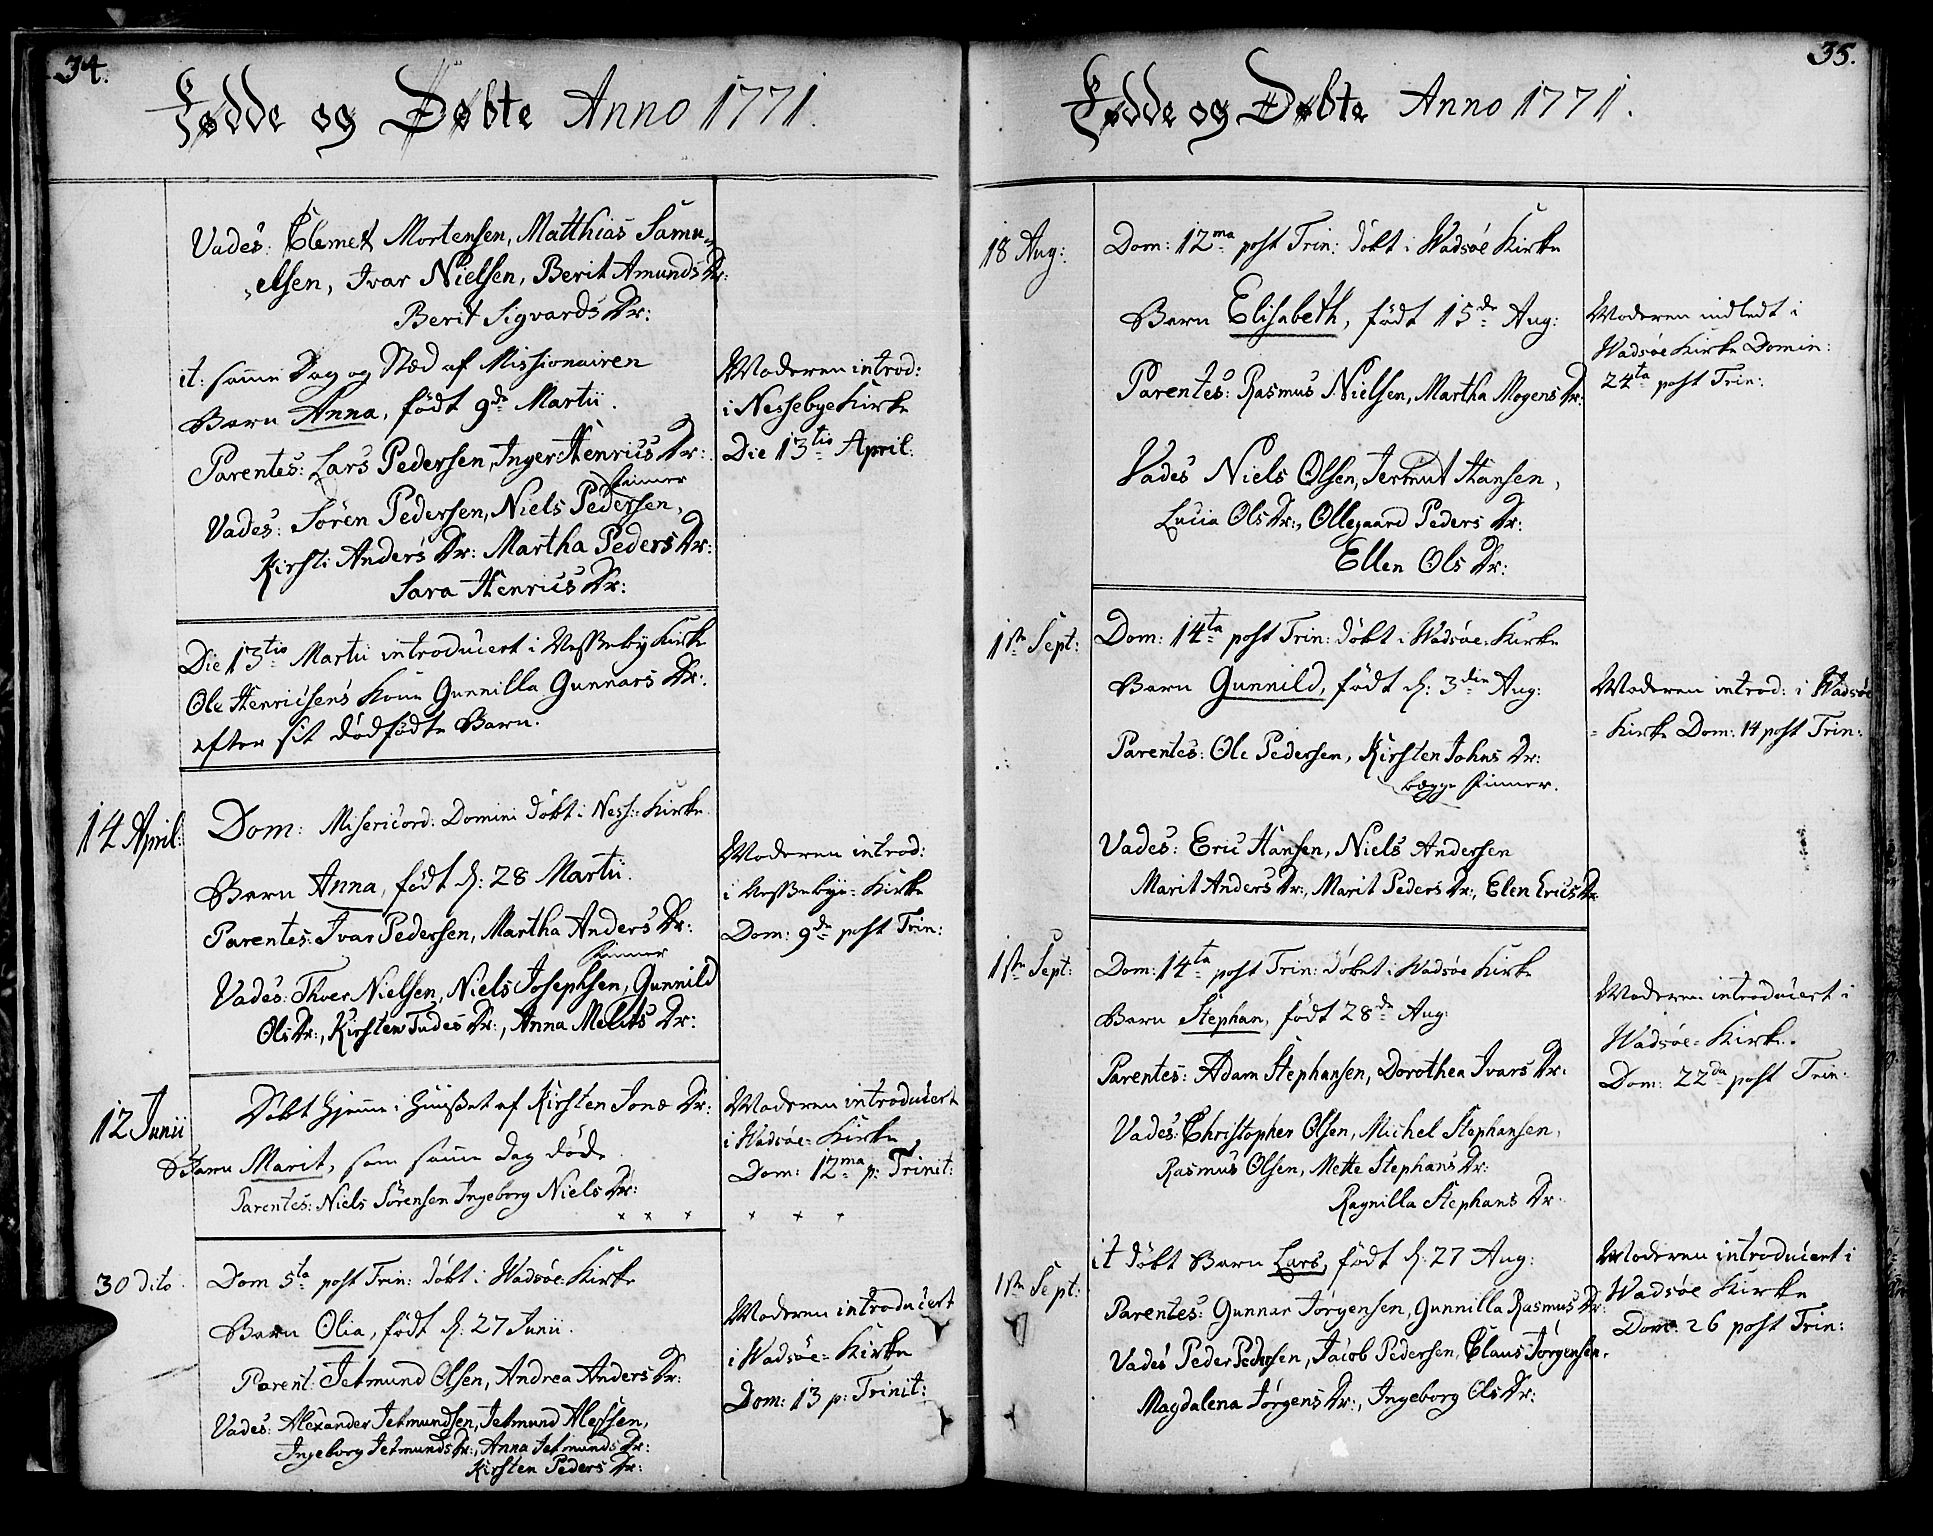 34.
Fødde og Døbte Anno 1771.
Vades: Clemet Mortensen, Matthias Samu-
elsen, Ivar Nielsen, Berit Amunds Dr:
Berit Sigvards Dr:
it: samme Dag og Stæd af Missionairen
Barn Anna, født 9de Martii.
Parentes: Lars Pedersen, Inger Henrics Dr:
Finner
Vades: Sören Pedersen, Niels Pedersen,
Kirsti Anders Dr: Martha Peders Dr:
Sara Henrics Dr:
Moderen introd:
i Nessebye Kirke
Die 13tio April:
Die 13tio Martii introducert i Nesseby Kirke
Ole Henricsens Kone Gunnilla Gunnars Dr:
efter sit dødfødte Barn.
14 April:
Dom: Misericord: Domini døbt i Ness: Kirke
Barn Anna, født d: 28 Martii.
Parentes: Ivar Pedersen, Martha Anders Dr:
Finner
Vades: Thoer Nielsen, Niels Josephsen, Gunnild
Ols Dr:, Kirsten Tudes Dr:, Anna Melits Dr:
Moderen introd:
i Nessebye-Kirke
Dom: 9de post Trin:
12 Junii
Døbt hjemme i Huuset af Kirsten Jonæ Dr:
Barn Marit, som samme Dag døde.
Parentes: Niels Sörensen Ingeborg Niels Dr:
x x x
Moderen introducert
i Wadsøe-Kirke
Dom: 12ma p: Trinit:
x x x
30 dito.
Dom 5ta post Trin: døbt i Wadsøe Kirke
Barn Olia, født d: 27 Junii.
Parent: Jetmund Olsen, Andrea Anders Dr:
Vades: Alexander Jetmundsen, Jetmund Alessen,
Ingeborg Jetmunds Dr:, Anna Jetmunds Dr:
Kirsten Peders Dr:
Moderen introducert
i Wadsøe-Kirke
Dom: 13 p: Trinit:
35.
Fødde og Døbte Anno 1771.
18 Aug:
Dom: 12ma post Trin: døbt i Wadsøe Kirke
Barn Elisabeth, født 15de Aug:
Parentes: Rasmus Nielsen, Martha Mogens Dr:
Vades Niels Olsen, Jertmut Hansen,
Lucia Ols Dr:, Ollegaard Peders Dr:
Ellen Ols Dr:
Moderen indledt i
Wadsøe Kirke Domin:
24ta post Trin:
1ste Sept:
Dom: 14ta post Trin: døbt i Wadsøe-Kirke
Barn Gunnild, født d: 3die Aug:
Parentes: Ole Pedersen, Kirsten Johns Dr:
begge Finner.
Vades: Eric Hansen, Niels Andersen
Marit Anders Dr:, Marit Peders Dr:, Elen Erics Dr
Moderen introd: i Wadsøe
-Kirke Dom: 14 post Trin:
1ste Sept:
Dom: 14ta post Trin: døbet i Wadsøe Kirke
Barn Stephan, født 28de Aug:
Parentes: Adam Stephansen, Dorothea Ivars Dr:
Vades: Christopher Olsen, Michel Stephansen,
Rasmus Olsen, Mette Stephans Dr:
Ragnilla Stephans Dr.
Moderen introducert i
Wadsøe-Kirke.
Dom: 22da post Trin:
1ste Sept:
it døbt Barn Lars, født d: 27 Aug:
Parentes: Gunnar Jörgensen, Gunnilla Rasmus Dr:
Vades Peder Pedersen, Jacob Pedersen, Claus Jörgensen,
Magdalena Jörgens Dr:, Ingeborg Ols Dr:
Moderen introducert i
Wadsøe Kirke
Dom: 26 post Trin: